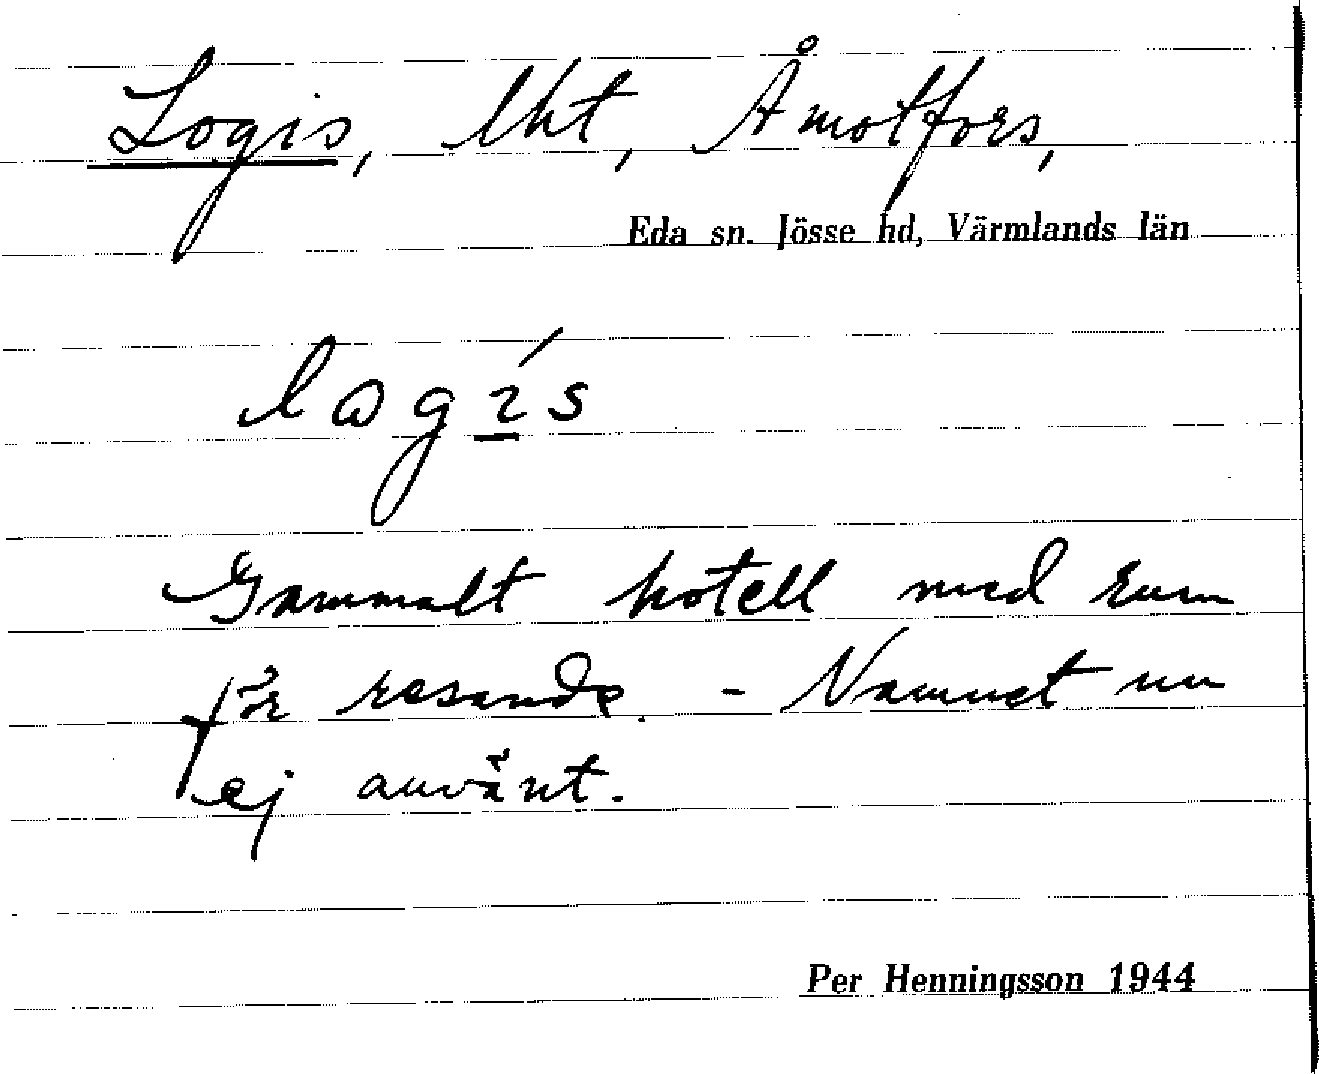 Logis, lht, Åmotfors,
Eda sn. Jösse hd, Värmlands län
lɷgı́s
Gammalt hotell med rum
för resande. - Namnet nu
ej använt.
Per Henningsson 1944